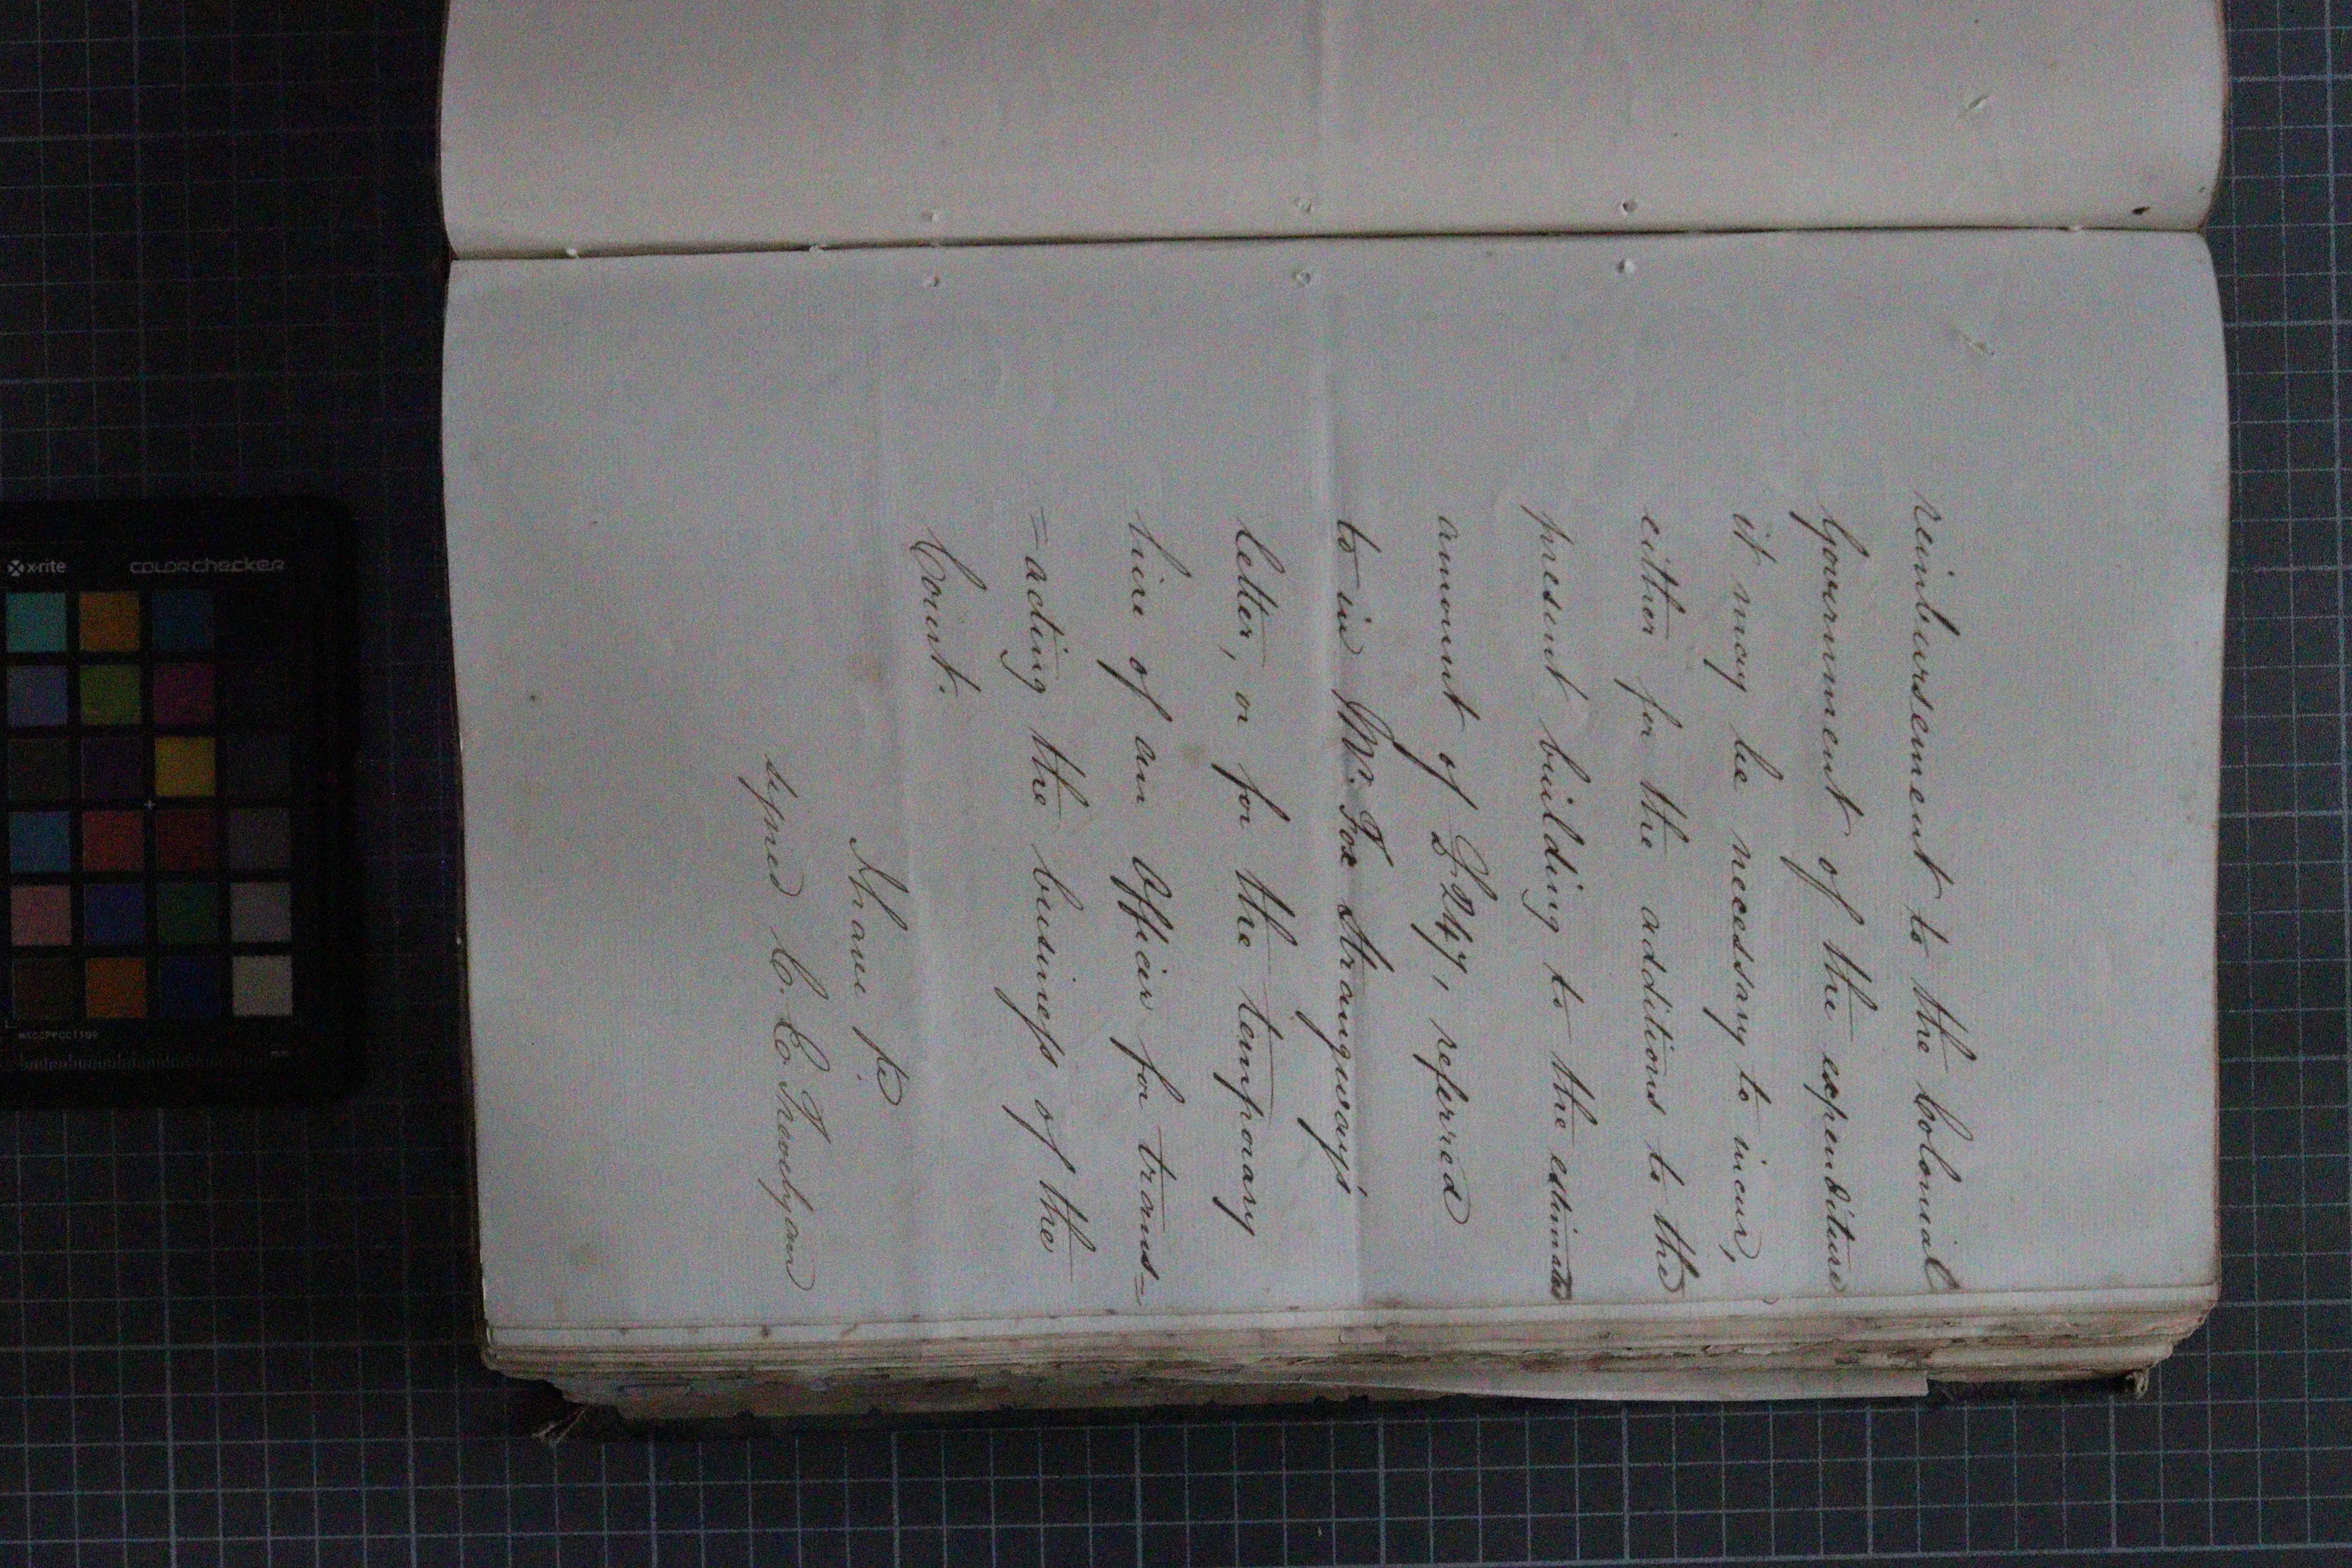 reimbursement to the Colonial
Government of the expenditure
it may be necessary to incur,
either for the additions to the
present building to the estimated
amount of £247, referred
to in Mr. Fox Strangways'
letter, or for the temporary
hire of an Officer for trans=
=acting the business of the
Court.
I have &c
signed C. E. Trevelyan
x-rite
colorchecker